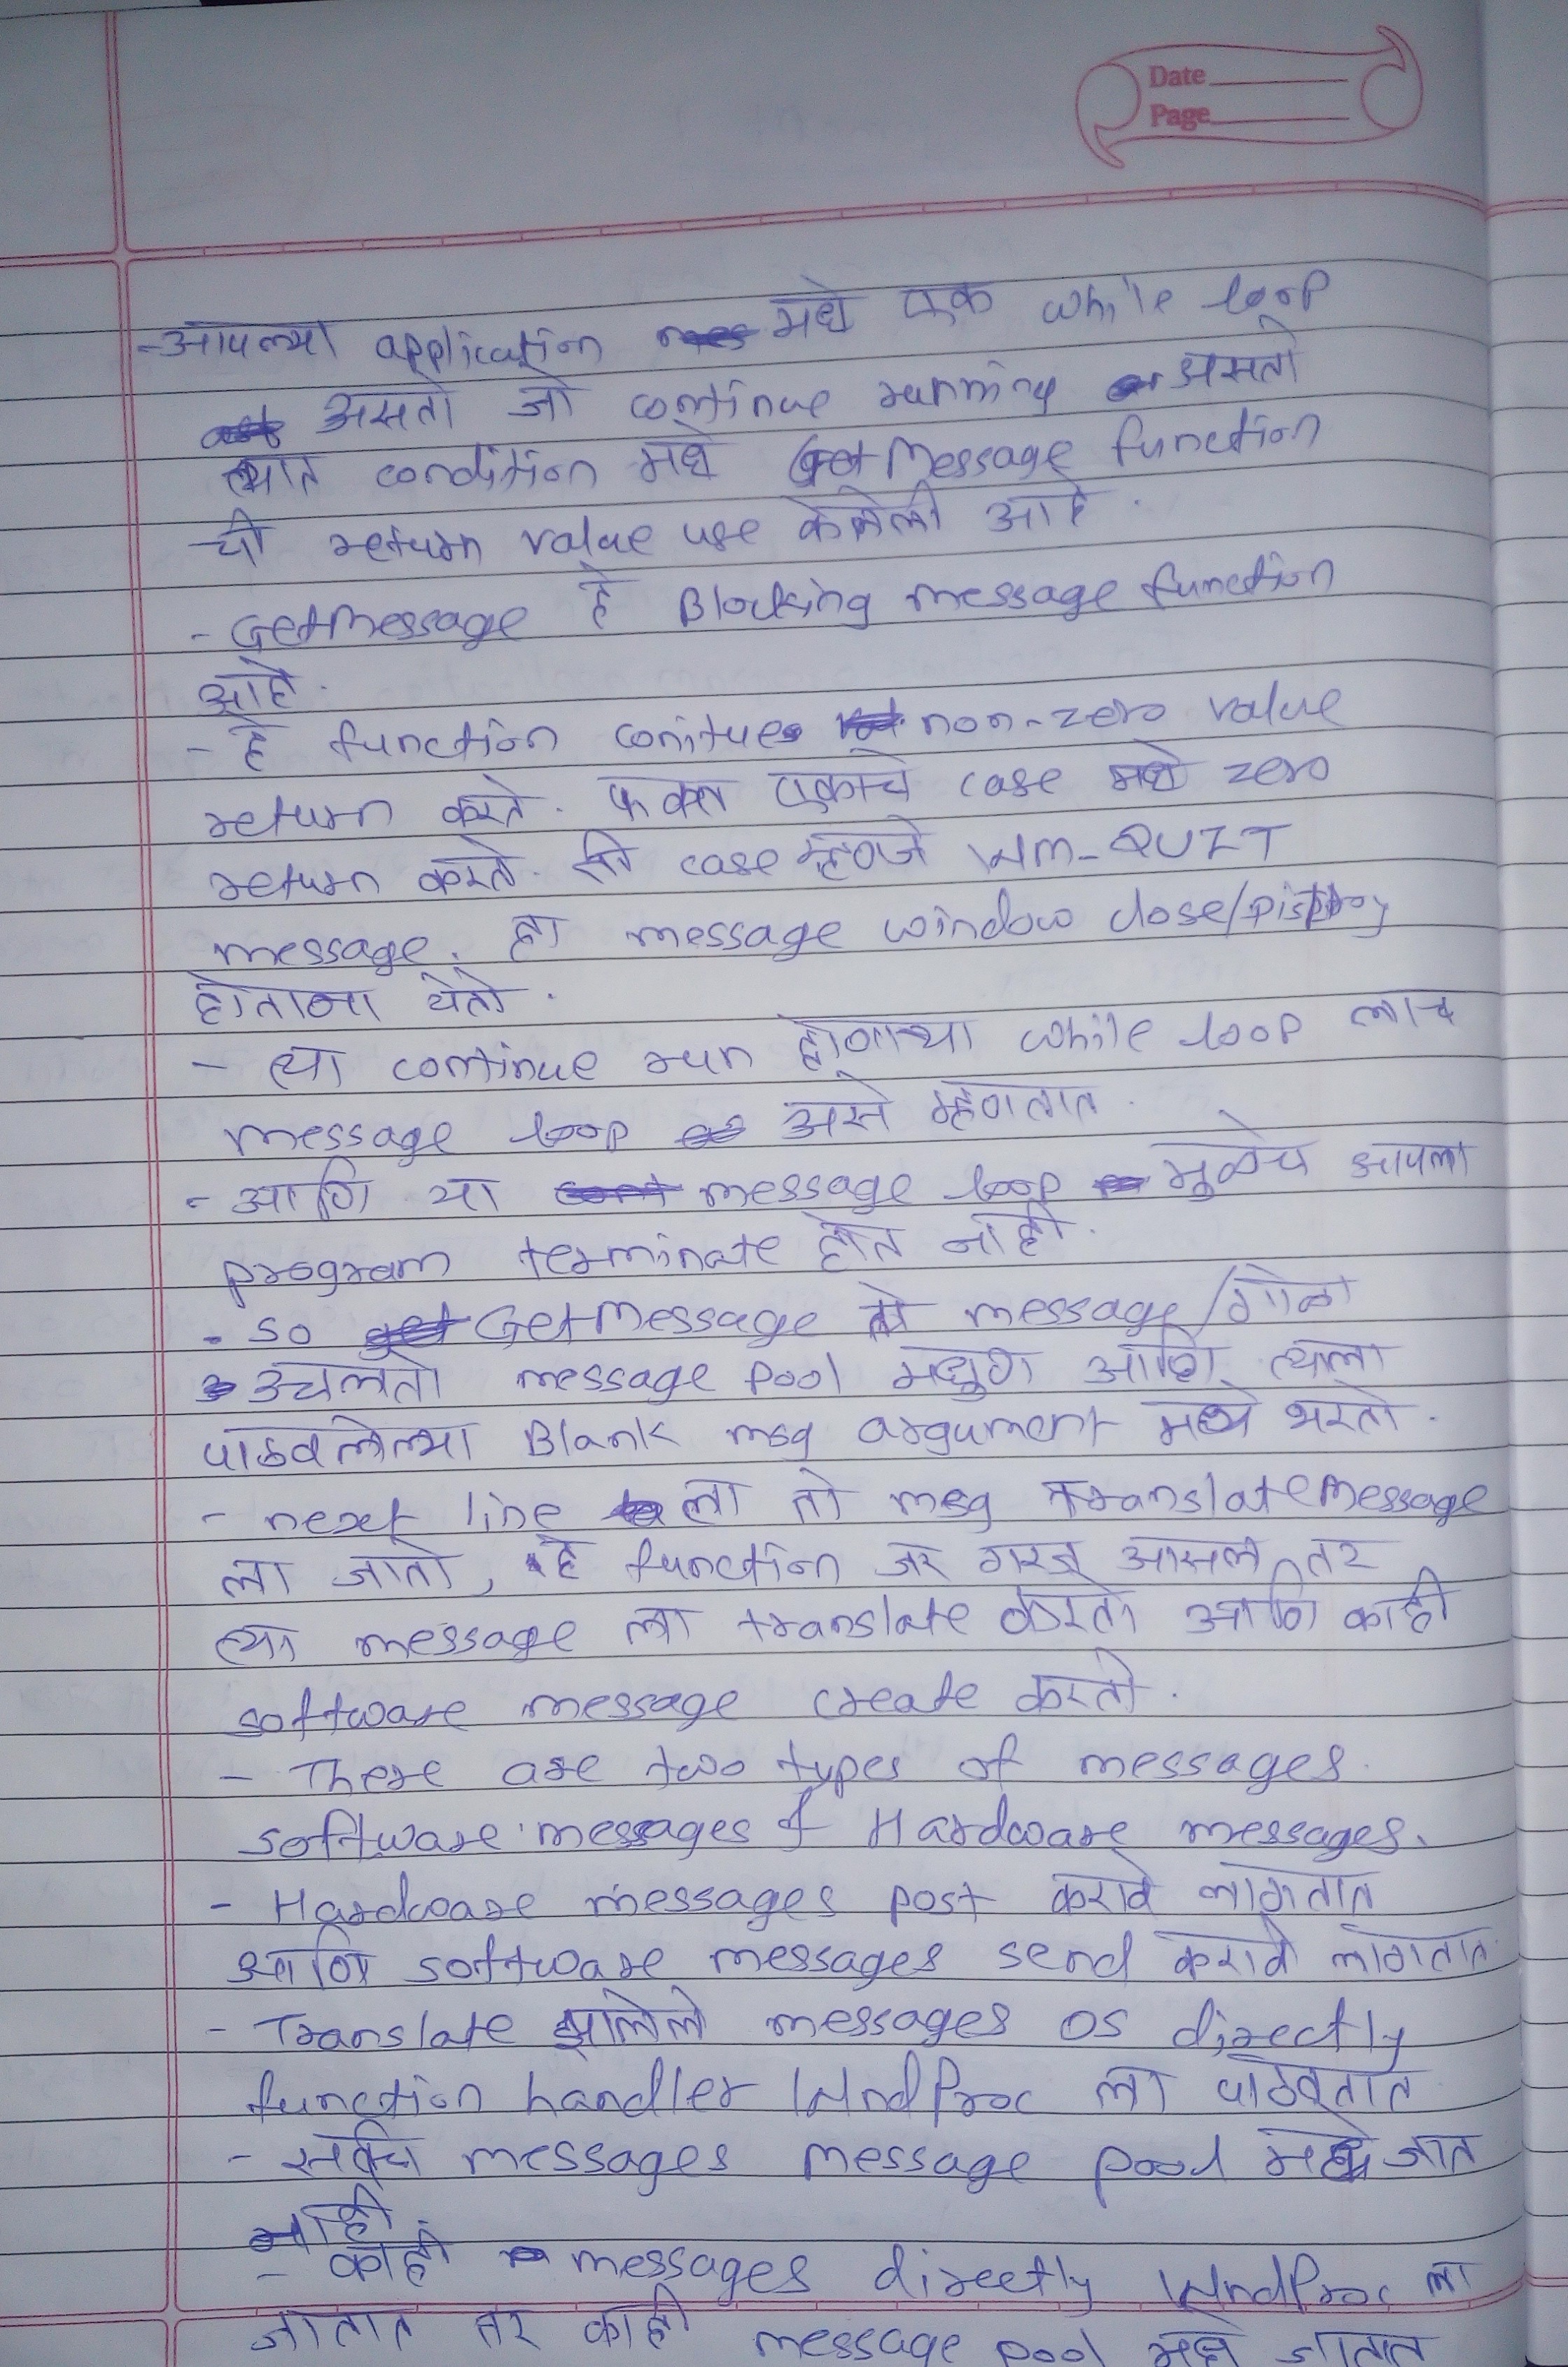 Date
Page
- आपल्या application मधे एक while loop
असतो जो continue running असतो
त्यात condition मधे GetMessage function
ची return value use केलेली आहे.
- GetMessage हे Blocking message function
आहे.
- हे function conitues non-zero value
return करते. फक्त एकाचे case मधे zero
return करते. ती case म्हणजे WM_QUIT
message. हा message window close/
होताना येतो.
- त्या continue run होणाऱ्या while loop लाच
message loop असे म्हणतात.
- आणि या message loop मुळेच आपला
program terminate होत नाही.
- so GetMessage तो message/गोळा
उचलतो message pool मधुण आणि त्याला
पाठवलेल्या Blank msg argument मध्ये भरतो.
- next line ला तो msg TranslateMessage
ला जातो, हे function जर गरज आसल तर
त्या message ला translate करतो आणि काही
software message create करतो.
- There are two types of messages.
software messages & Hardware messages.
- Hardware messages post करावे लागतात
आणि software messages send करावे लागतात.
- Translate झालेले messages OS directly
function handler WndProc ला पाठवतात
- सर्वच messages message pool मधे जात
नाही.
- काही messages directly WndProc ला
जातात तर काही message pool मधे जातात